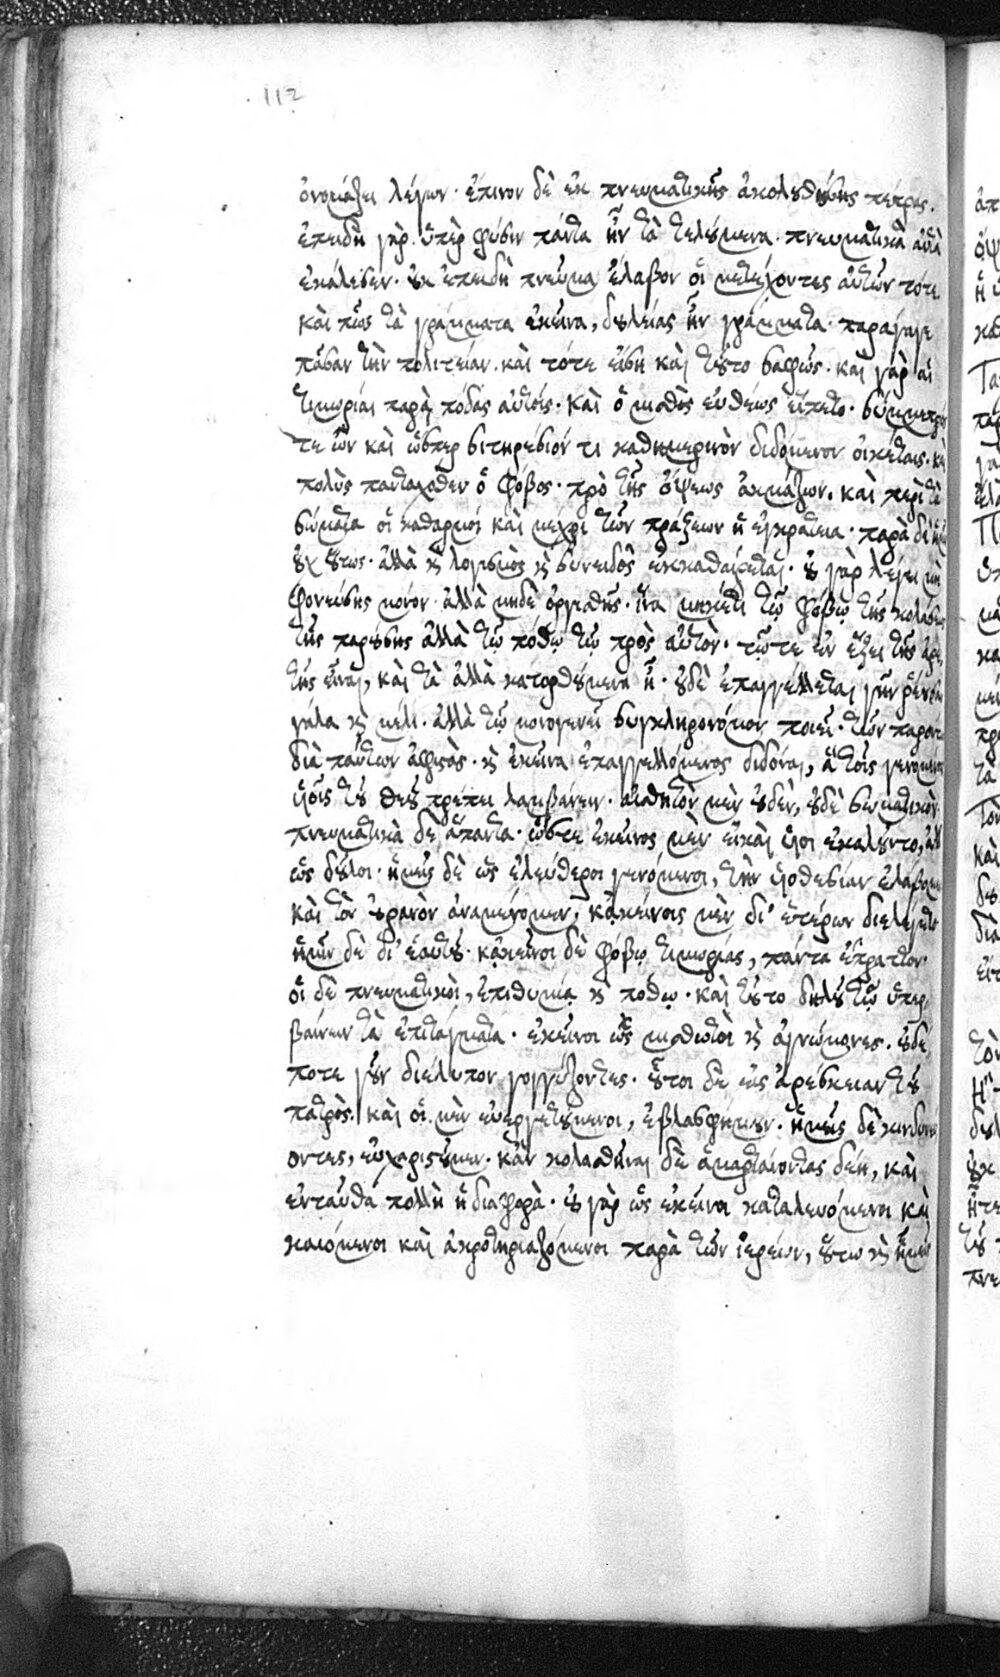 112
ὀνομάζει λέγων· ἔπινον δὲ ἐκ πνευματικῆς ἀκολουθούσης πέτρας.
ἐπειδὴ γὰρ ὑπὲρ φύσιν πάντα ἦν τὰ τελούμενα· πνευματικὰ αὐτὰ
ἐκάλεσεν· οὐκ ἐπειδὴ πνεῦμα ἔλαβον οἱ μετέχοντες αὐτῶν τότε
καὶ πῶς τὰ γράμματα ἐκεῖνα, δουλείας ἦν γράμματα· παράγαγε
πᾶσαν τὴν πολιτείαν. καὶ τότε εἴση καὶ τοῦτο σαφῶς· καὶ γὰρ αἱ
τιμωρίαι παρὰ πόδας αὐτοῖς· καὶ ὁ μισθὸς εὐθέως εἵπετο· σύμμετρός
τε ὢν καὶ ὥσπερ σιτηρέσιόν τι καθημερινὸν διδόμενον οἰκέταις· καὶ
πολὺς πανταχόθεν ὁ φόβος· πρὸ τῆς ὄψεως ἀκμάζων. καὶ περὶ τὰ
σώματα οἱ καθαρμοὶ καὶ μέχρι τῶν πράξεων ἡ ἐγκράτεια· παρὰ δὲ ἡμῖν
οὐχ οὕτως· ἀλλὰ κ λογισμὸς κ συνειδὸς ἐκκαθαίρεται· οὐ γὰρ λέγει μὴ
φονεύσης μόνον· ἀλλὰ μηδὲ ὀργισθῆς· ἵνα μηκέτι τῷ φόβῳ τῆς κολάσεως
τῆς παρούσης ἀλλὰ τῷ πόθῳ τῷ πρὸς αὐτὸν· τῷτε ἐν ἕξει τῆς ἀρε
τῆς εἶναι, καὶ τὰ ἄλλα κατορθούμενα ᾖ· οὐδὲ ἐπαγγέλλεται γῆν ῥέουσαν
γάλα κ μέλι· ἀλλὰ τῷ μονογενεῖ συγκληρονόμον ποιεῖ· τῶν παρόντων
διὰ πάντων ἀφιστὰς· κ ἐκεῖνα ἐπαγγελλόμενος διδόναι, ἃ τοὺς γενομένους
υἱοὺς τοῦ θεοῦ πρέπει λαμβάνειν· αἰσθητὸν μὲν οὐδὲν, οὐδὲ σωματικὸν·
πνευματικὰ δὲ ἅπαντα· ὥστε ἐκεῖνος μὲν εἰ καὶ υἱοὶ ἐκαλοῦντο, ἀλλ
ὡς δοῦλοι· ἡμεῖς δὲ ὡς ἐλεύθεροι γενόμενοι, τὴν υἱοθεσίαν ἐλάβομεν
καὶ τὸν οὐρανὸν ἀναμένομεν, κἀκείνοις μὲν δι' ἑτέρων διελέγετο
ἡμῖν δὲ δι' ἑαυτοῦ· κἀκεῖνοι δὲ φόβῳ τιμωρίας, πάντα ἔπραττον·
οἱ δὲ πνευματικοὶ, ἐπιθυμία κ πόθῳ· καὶ τοῦτο δηλοῦ τῷ ὑπερ
βαίνειν τὰ ἐπιτάγματα· ἐκεῖνοι ὡς μισθωτοὶ κ ἀγνώμονες. οὐδέ
ποτε γοῦν διέλιπον γογγύζοντες· οὗτοι δὲ εἰς ἀρέσκειαν τοῦ
πατρὸς. καὶ οἱ μὲν εὐεργετούμενοι, ἐβλασφήμουν· ἡμεῖς δὲ κινδυνεύ
οντες, εὐχαριστοῦμεν· κἂν κολασθῆναι δὲ ἁμαρτάνοντας δέη, καὶ
ἐνταῦθα πολλὴ ἡ διαφορὰ· οὐ γὰρ ὡς ἐκεῖνοι καταλευόμενοι καὶ
καιόμενοι καὶ ἀκρωτηριαζόμενοι παρὰ τῶν ἱερέων, οὕτω κ ἡμεῖς